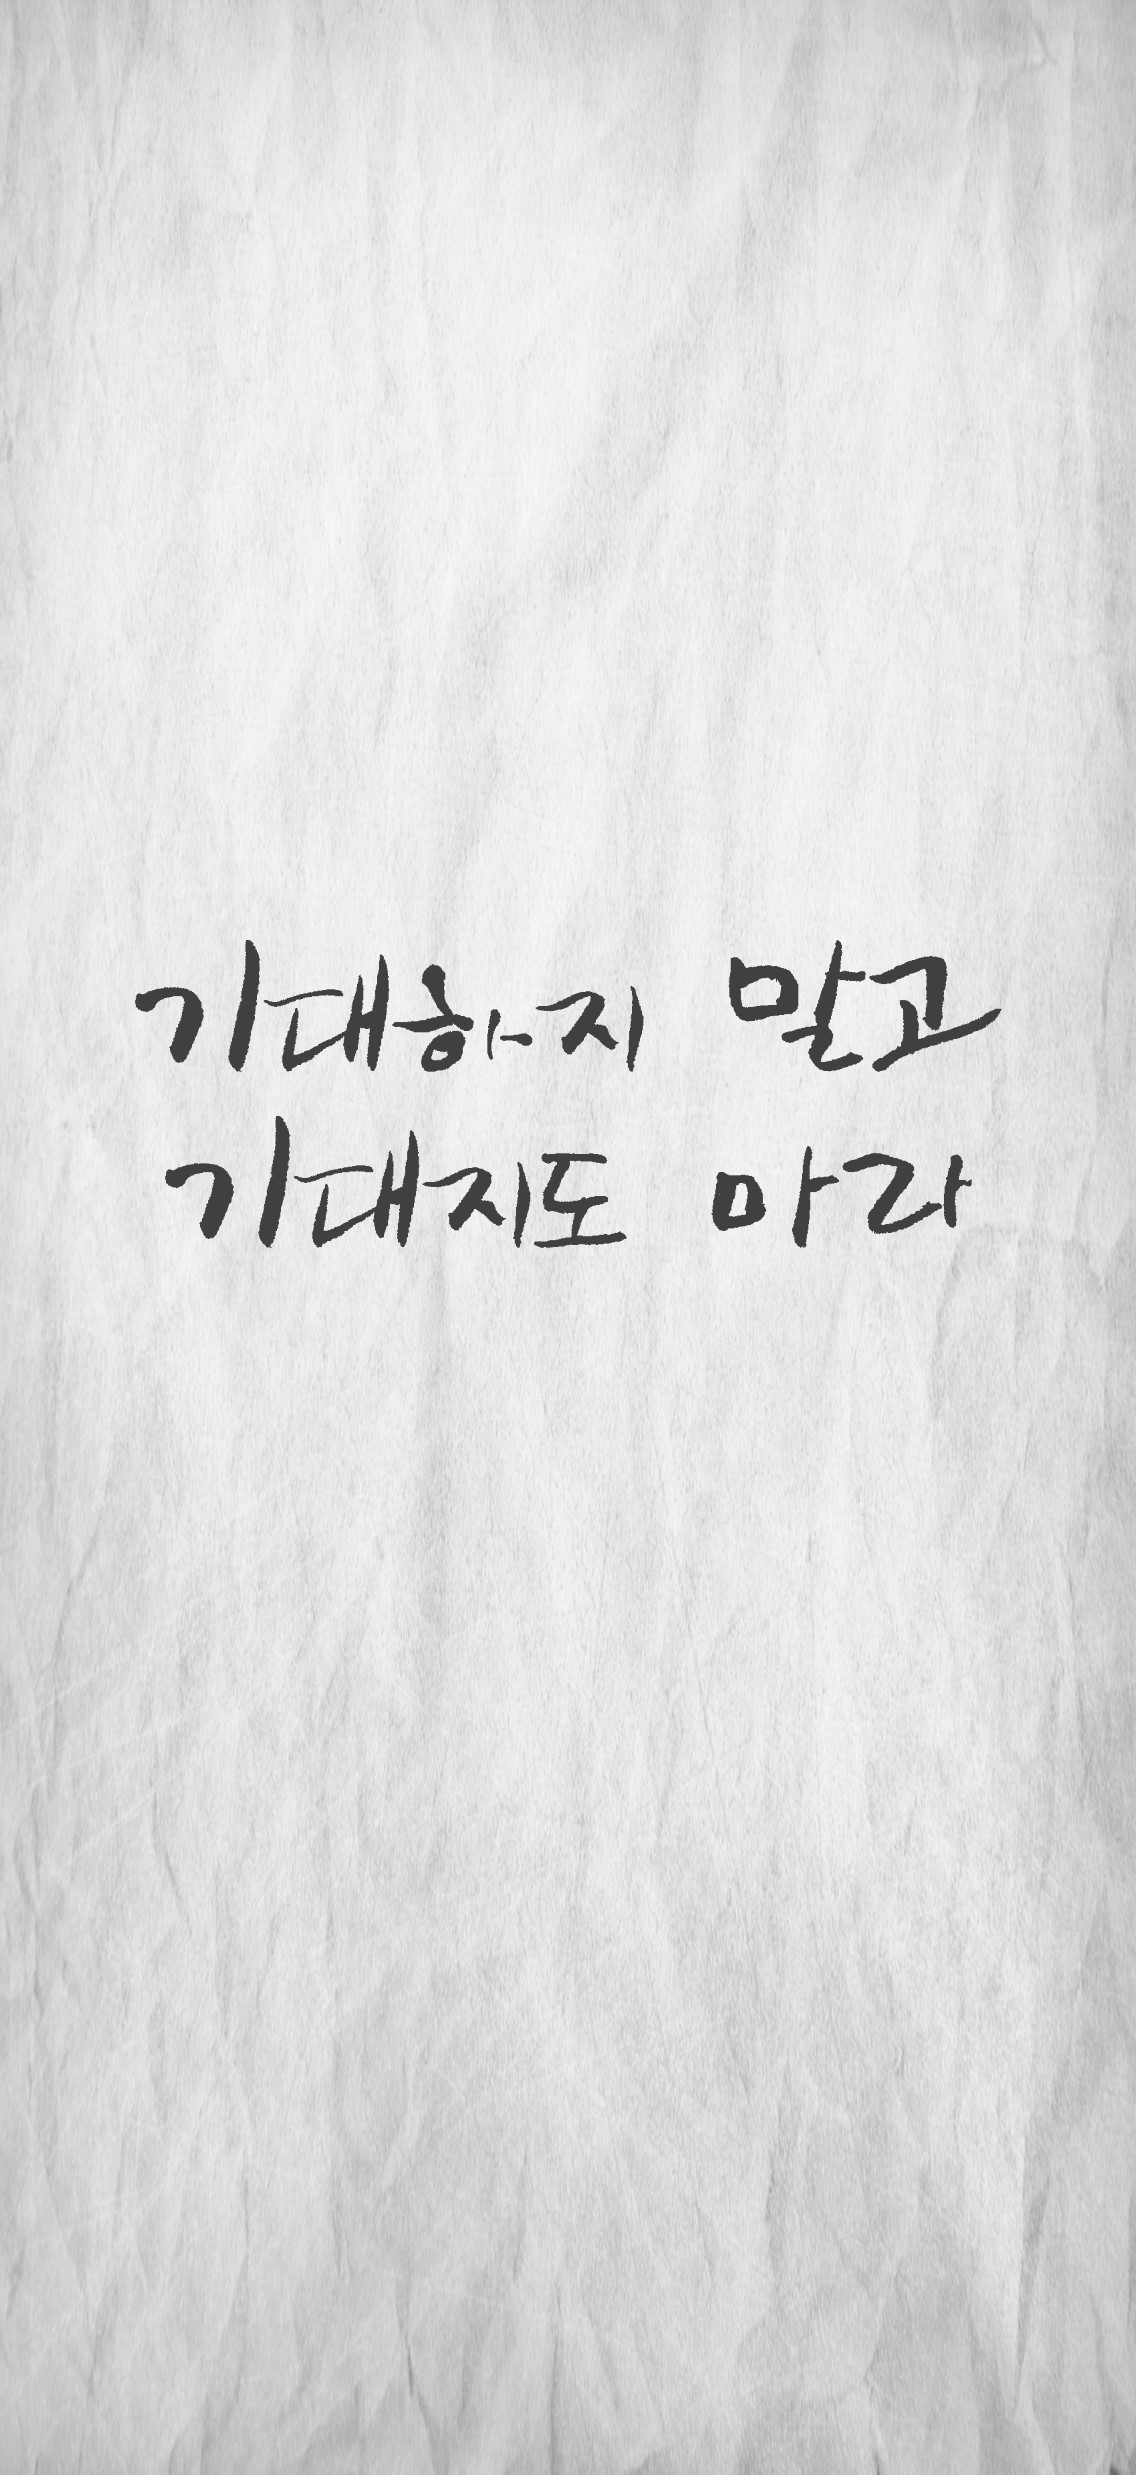 기대하지 말고
기대지도 마라